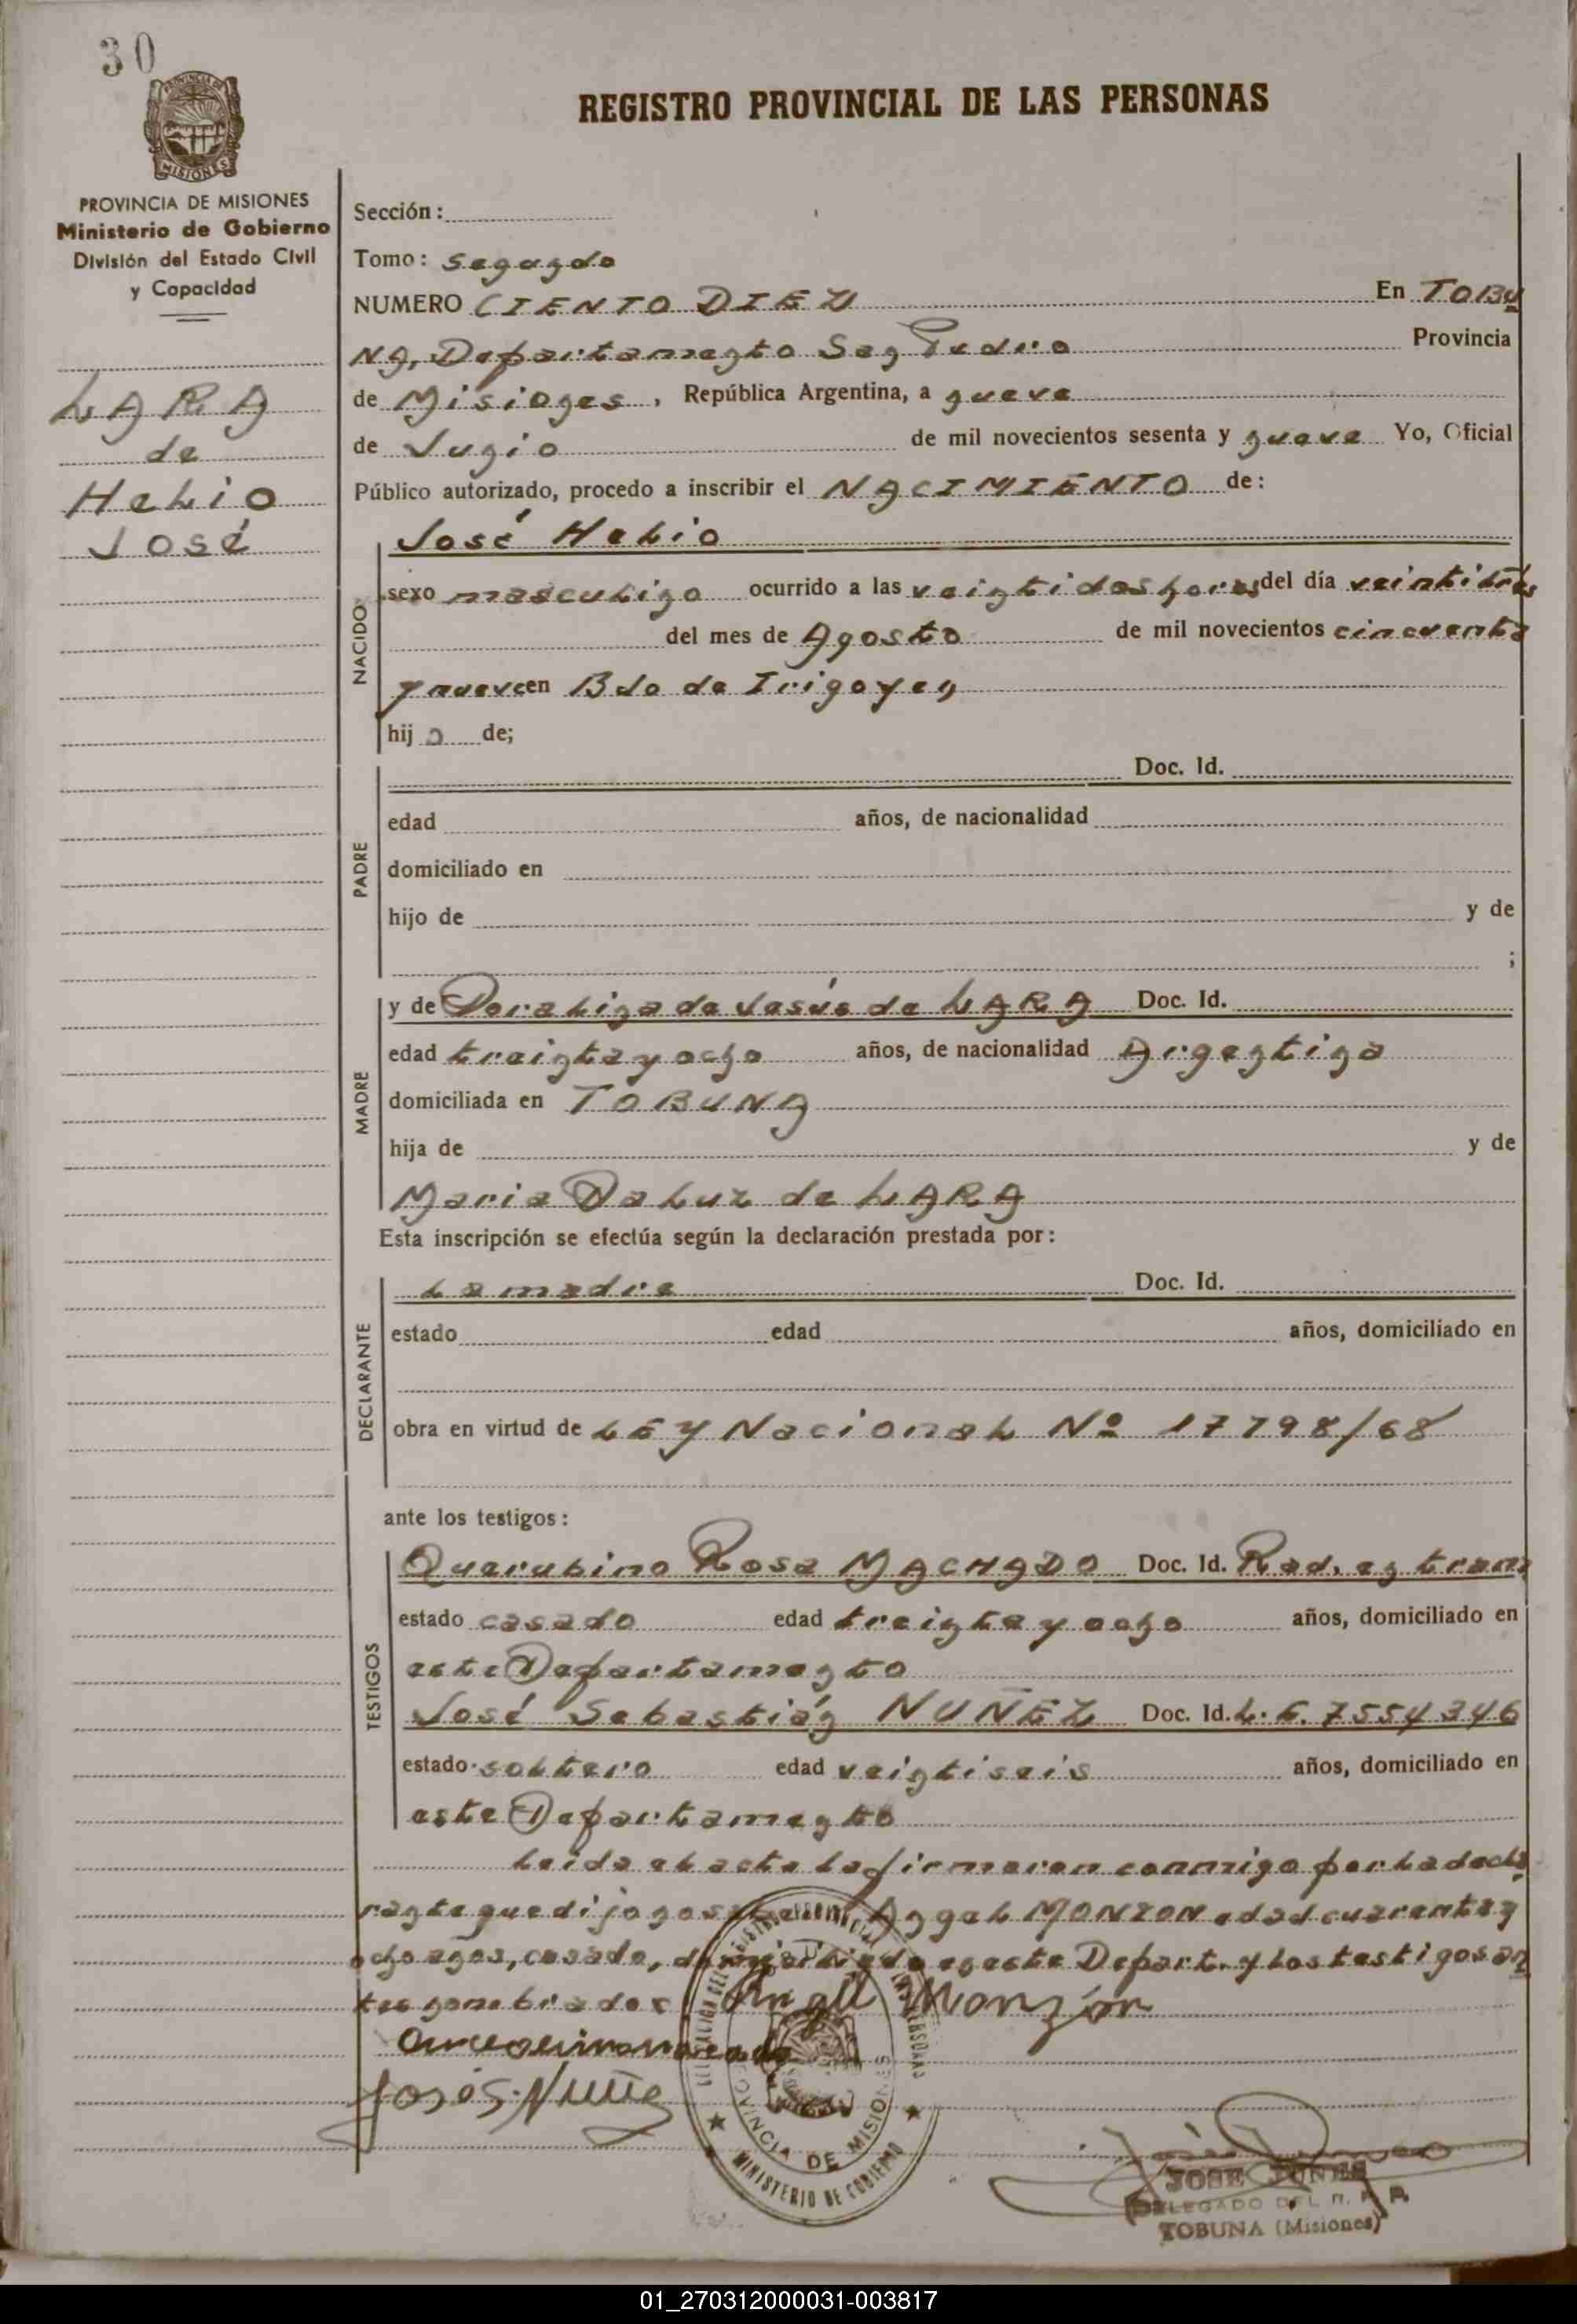 30
PROVINCIA DE
MISIONES
REGISTRO PROVINCIAL DE LAS PERSONAS
PROVINCIA DE MISIONES
Ministerio de Gobierno
División del Estado Civil
y Capacidad
LARA
de
Helio
José
Sección:
Tomo: Segundo
NUMERO CIENTO DIEZ En TOBU
NA, Departamento San Pedro Provincia
de Misiones, República Argentina, a nueve
de Junio de mil novecientos sesenta y nueve Yo, Oficial
Público autorizado, procedo a inscribir el NACIMIENTO de:
José Helio
NACIDO
sexo masculino ocurrido a las veintidos horas del día veintitrés
del mes de Agosto de mil novecientos cincuenta
y nueve en Bdo de Irigoyen
hijo de;
PADRE
Doc. Id.
edad años, de nacionalidad
domiciliado en
hijo de y de
;
MADRE
y de Doralina de Jesús de LARA Doc. Id.
edad treinta y ocho años, de nacionalidad Argentina
domiciliada en TOBUNA
hija de y de
Maria Da Luz de LARA
Esta inscripción se efectúa según la declaración prestada por:
DECLARANTE
La madre Doc. Id.
estado edad años, domiciliado en
obra en virtud de LEY Nacional Nº 17798/68
ante los testigos:
TESTIGOS
Querubino Rosa MACHADO Doc. Id. Rad. en tram
estado casado edad treinta y ocho años, domiciliado en
este Departamento
José Sebastián NUÑEZ Doc. Id. L. E. 7554346
estado soltero edad veintiseis años, domiciliado en
este Departamento
Leida el acta la firmaron conmigo por la decla
rante que dijo no Angel MONZON edad cuarenta y
ocho años, casado, domiciliado en este Depart. y los testigos an
tes nombrados Angel Monzón
José S. Nuñez
PROVINCIA DE MISIONES
MINISTERIO DE GOBIERNO
JOSE
DELEGADO DEL R. P. P.
TOBUNA (Misiones)
01_270312000031-003817